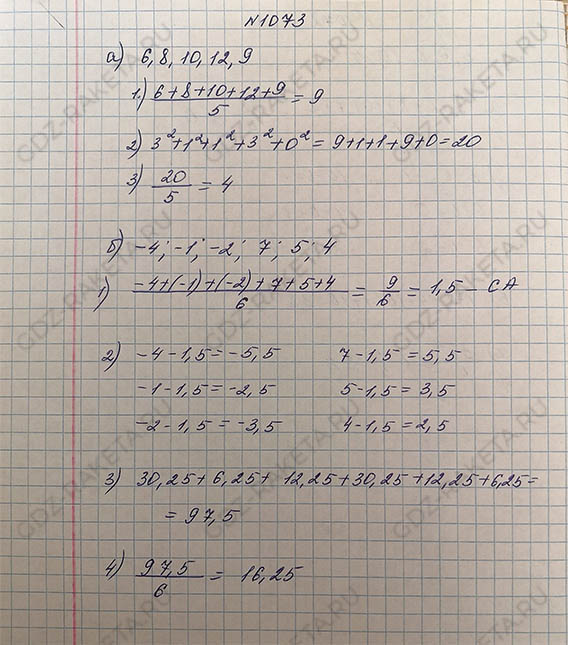 №1073
а) 6, 8, 10, 12, 9
1) (6+8+10+12+9)/5 = 9
2) 3²+1²+1²+3²+0² = 9+1+1+9+0=20
3) 20/5 = 4
б) -4; -1; -2; 7; 5; 4
1) (-4+(-1)+(-2)+7+5+4)/6 = 9/6 = 1,5 - СА
2) -4-1,5=-5,5 7-1,5=5,5
-1-1,5=-2,5 5-1,5=3,5
-2-1,5=-3,5 4-1,5=2,5
3) 30,25+6,25+12,25+30,25+12,25+6,25=
= 97,5
4) 97,5/6 = 16,25
GDZ-RAKETA.RU